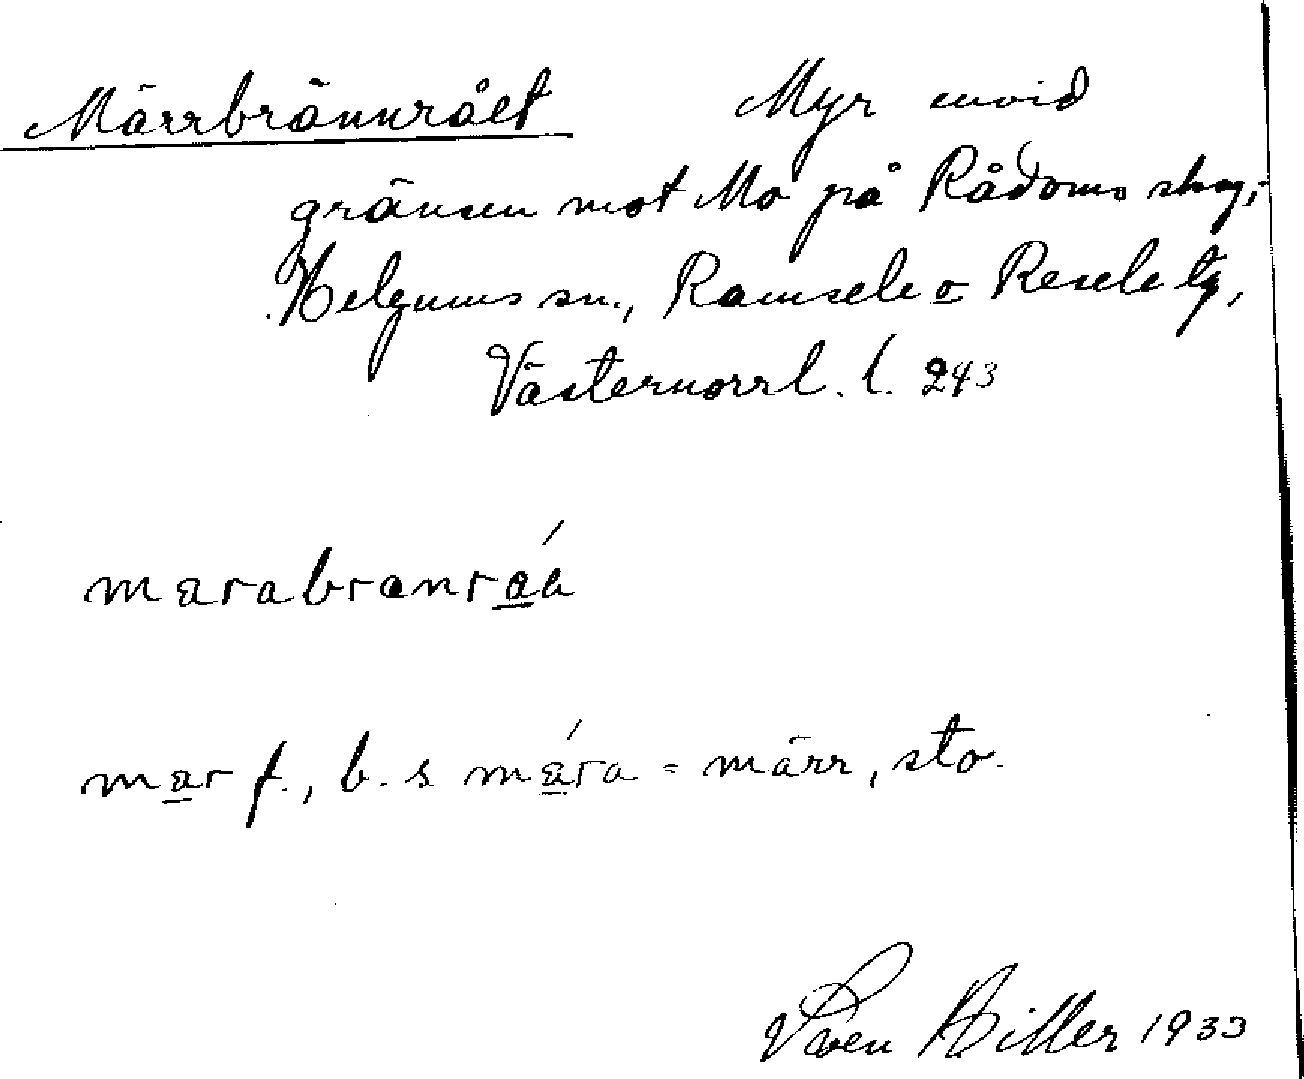 Märrbrännråët Myr invid
gränsen mot Mo på Rådoms skog,
Helgums sn., Ramsele o Resele tg,
Västernorrl. l. 243
marabranraa
mar f., b. s mara = märr, sto.
Sven Hiller 1933